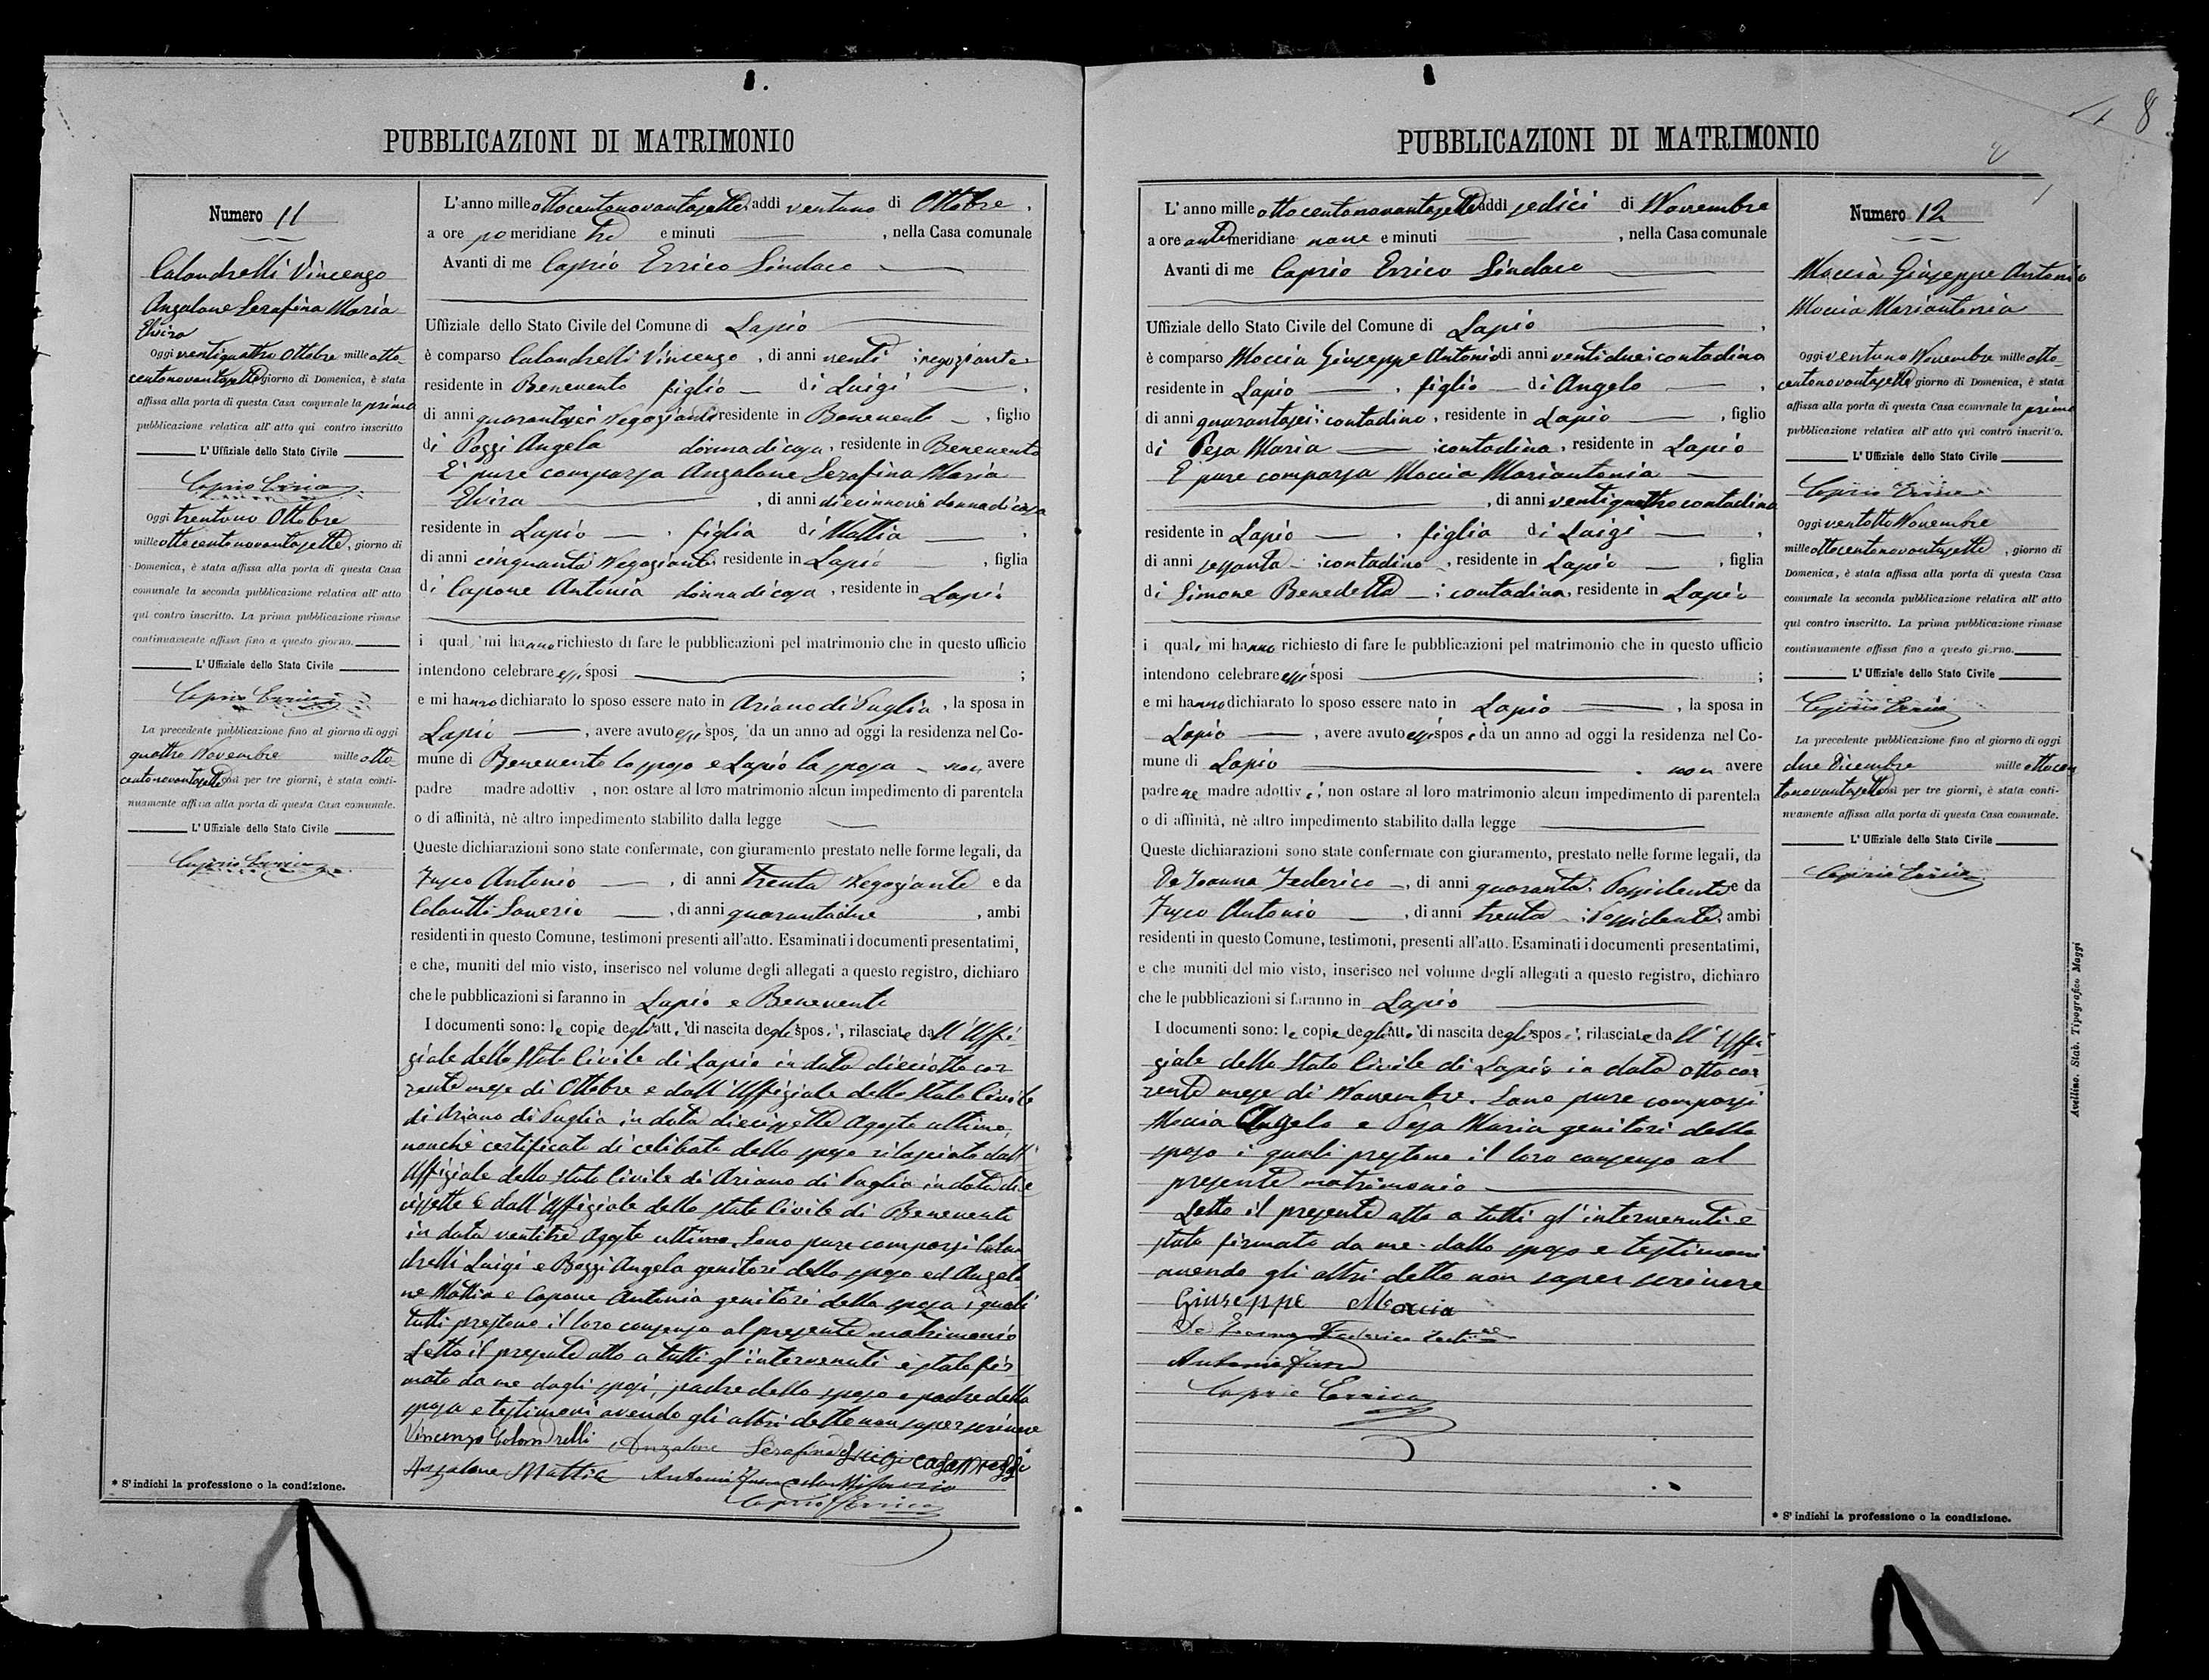 8
PUBBLICAZIONI DI MATRIMONIO
Numero 11
Calandrelli Vincenzo
Anzalone Serafina Maria
Elvira
Oggi ventiquattro Ottobre mille otto-
centonovantasette giorno di Domenica, è stata
affissa alla porta di questa Casa comunale la prima
pubblicazione relativa all' atto qui contro inscritto
L' Uffiziale dello Stato Civile
Caprio Errico
Oggi trentuno Ottobre
mille ottocentonovantasette, giorno di
Domenica, è stata affissa alla porta di questa Casa
comunale la seconda pubblicazione relativa all' atto
qui contro inscritto. La prima pubblicazione rimase
continuamente affissa fino a questo giorno.
L' Uffiziale dello Stato Civile
Caprio Errico
La precedente pubblicazione fino al giorno di oggi
quattro Novembre mille otto-
centonovantasette così per tre giorni, è stata conti-
nuamente affissa alla porta di questa Casa comunale.
L' Uffiziale dello Stato Civile
Caprio Errico
* S' indichi la professione o la condizione.
L' anno mille ottocentonovantasette addì ventuno di Ottobre,
a ore pomeridiane tre e minuti , nella Casa comunale
Avanti di me Caprio Errico Sindaco
Uffiziale dello Stato Civile del Comune di Lapio
è comparso Calandrelli Vincenzo, di anni venti, negoziante
residente in Benevento figlio di Luigi ,
di anni quarantasei Negoziante residente in Benevento , figlio
di Poggi Angela donna di casa, residente in Benevento
È pure comparsa Anzalone Serafina Maria
Elvira , di anni diecinnove donna di casa
residente in Lapio , figlia di Mattia ,
di anni cinquanta Negoziante residente in Lapio , figlia
di Capone Antonia donna di casa, residente in Lapio
i quali mi hanno richiesto di fare le pubblicazioni pel matrimonio che in questo ufficio
intendono celebrare essi sposi ;
e mi hanno dichiarato lo sposo essere nato in Ariano di Puglia, la sposa in
Lapio , avere avuto essi sposi da un anno ad oggi la residenza nel Co-
mune di Benevento lo sposo e Lapio la sposa non avere
padre madre adottiv , non ostare al loro matrimonio alcun impedimento di parentela
o di affinità, nè altro impedimento stabilito dalla legge
Queste dichiarazioni sono state confermate, con giuramento prestato nelle forme legali, da
Fusco Antonio , di anni trenta Negoziante e da
Colantti Saverio , di anni quarantadue , ambi
residenti in questo Comune, testimoni presenti all'atto. Esaminati i documenti presentatimi,
e che, muniti del mio visto, inserisco nel volume degli allegati a questo registro, dichiaro
che le pubblicazioni si faranno in Lapio e Benevento
I documenti sono: le copie degli atti di nascita degli sposi, rilasciate dall'Uffi-
ziale dello Stato Civile di Lapio in data dieciotto cor
rente mese di Ottobre e dall'Uffiziale dello Stato Civile
di Ariano di Puglia in data diecissette Agosto ultimo,
nonchè certificato di celibato dello sposo rilasciato dall'
Uffiziale dello Stato Civile di Ariano di Puglia in data die
cissette e dall'Uffiziale dello stato Civile di Benevento
in data ventitre Agosto ultimo. Sono pure comparsi Calan
drelli Luigi e Poggi Angela genitori dello sposo ed Anzalo
ne Mattia e Capone Antonia genitori della sposa i quali
tutti prestono il loro consenso al presente matrimonio
Letto il presente atto a tutti gl'intervenuti è stato fir
mato da me dagli sposi, padre dello sposo e padre della
sposa e testimoni avendo gli altri detto non saper scrivere
Vincenzo Calandrelli Anzalone Serafina Luigi
Anzalone Mattia Antonio Fusco
Caprio Errico
PUBBLICAZIONI DI MATRIMONIO
L' anno mille ottocentonovantasette addì sedici di Novembre
a ore antimeridiane nove e minuti , nella Casa comunale
Avanti di me Caprio Errico Sindaco
Uffiziale dello Stato Civile del Comune di Lapio ,
è comparso Moccia Giuseppe Antonio di anni ventidue contadino
residente in Lapio , figlio di Angelo ,
di anni quarantasei contadino, residente in Lapio , figlio
di Pesa Maria contadina, residente in Lapio
È pure comparsa Moccia Mariantonia
, di anni ventiquattro contadina
residente in Lapio , figlia di Luigi ,
di anni sessanta contadino, residente in Lapio , figlia
di Simone Benedetta contadina, residente in Lapio
i quali mi hanno richiesto di fare le pubblicazioni pel matrimonio che in questo ufficio
intendono celebrare essi sposi ;
e mi hanno dichiarato lo sposo essere nato in Lapio , la sposa in
Lapio , avere avuto essi sposi da un anno ad oggi la residenza nel Co-
mune di Lapio non avere
padre ne madre adottivi, non ostare al loro matrimonio alcun impedimento di parentela
o di affinità, nè altro impedimento stabilito dalla legge
Queste dichiarazioni sono state confermate con giuramento, prestato nelle forme legali, da
De Joanna Federico , di anni quaranta, Possidente e da
Fusco Antonio , di anni trenta Possidente, ambi
residenti in questo Comune, testimoni, presenti all'atto. Esaminati i documenti presentatimi,
e che muniti del mio visto, inserisco nel volume degli allegati a questo registro, dichiaro
che le pubblicazioni si faranno in Lapio
I documenti sono: le copie degli atti di nascita degli sposi, rilasciate dall'Uffi-
ziale dello Stato Civile di Lapio in data otto cor-
rente mese di Novembre. Sono pure comparsi
Moccia Angelo e Pesa Maria genitori dello
sposo i quali prestono il loro consenso al
presente matrimonio
Letto il presente atto a tutti gl'intervenuti è
stato firmato da me dallo sposo e testimoni
avendo gli altri detto non saper scrivere
Giuseppe Moccia
De Joanna Federico
Antonio Fusco
Caprio Errico
Numero 12
Moccia Giuseppe Antonio
Moccia Mariantonia
Oggi ventuno Novembre mille otto-
centonovantasette giorno di Domenica, è stata
affissa alla porta di questa Casa comunale la prima
pubblicazione relativa all' atto qui contro inscritto.
L' Uffiziale dello Stato Civile
Caprio Errico
Oggi ventotto Novembre
mille ottocentonovantasette , giorno di
Domenica, è stata affissa alla porta di questa Casa
comunale la seconda pubblicazione relativa all' atto
qui contro inscritto. La prima pubblicazione rimase
continuamente affissa fino a questo giorno.
L' Uffiziale dello Stato Civile
Caprio Errico
La precedente pubblicazione fino al giorno di oggi
due Dicembre mille ottocen
tonovantasette così per tre giorni, è stata conti-
nuamente affissa alla porta di questa Casa comunale.
L' Uffiziale dello Stato Civile
Caprio Errico
* S' indichi la professione o la condizione.
Avellino. Stab. Tipografico Maggi